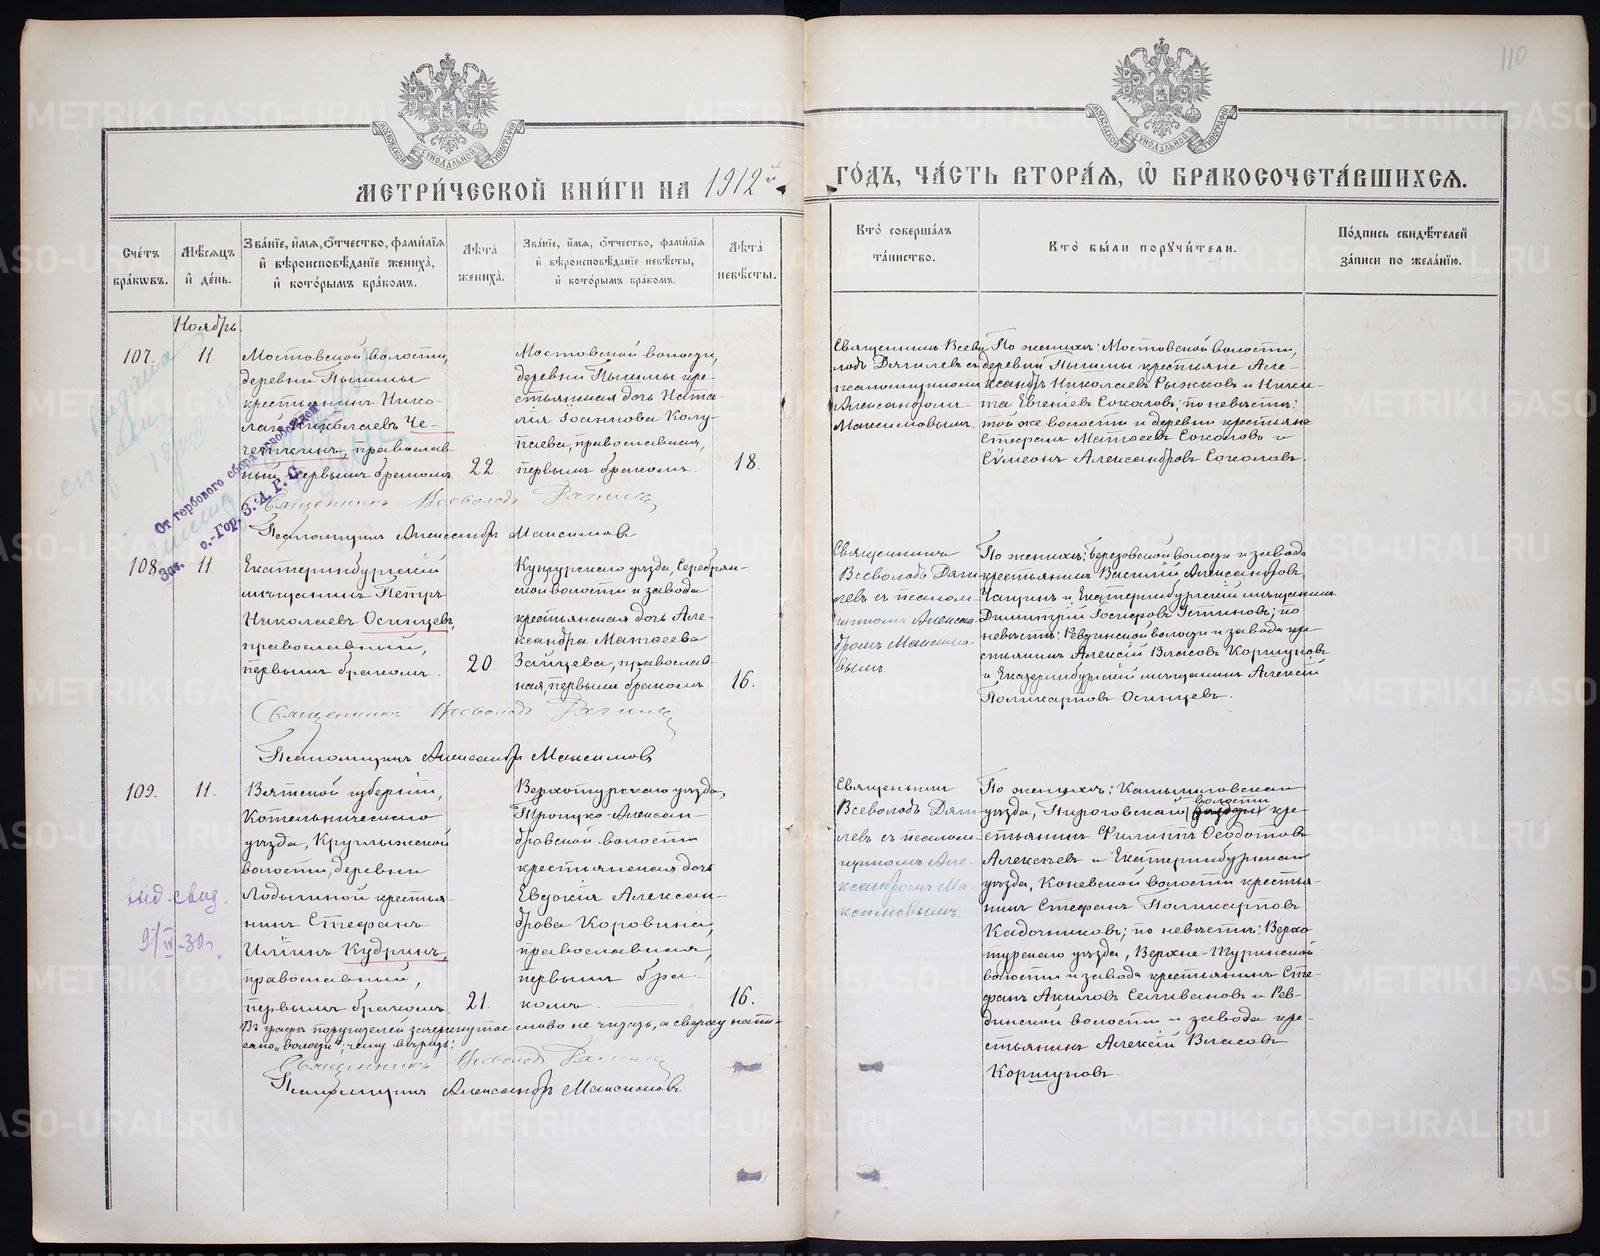 110
МЕТРИ́ЧЕСКОЙ КНИ́ГИ НА 1912й
ГО́ДЪ, ЧА́СТЬ ВТОРА́Я, Ѿ БРАКОСОЧЕТА́ВШИХСЯ.
Сче́тъ бра́кѡвъ.
Мѣ́сяцъ и҆ де́нь.
Зва́нїе, и҆́мя, ѻ҆́тчество, фами́лїя
и҆ вѣроисповѣ́данїе жениха̀,
и҆ кото́рымъ бра́комъ.
Лѣ́та жениха̀.
Зва́нїе, и҆́мя, ѻ҆́тчество, фами́лїя
и҆ вѣроисповѣ́данїе невѣ́сты,
и҆ кото́рымъ бра́комъ.
Лѣ́та невѣ́сты.
Кто̀ соверша́лъ
та́инство.
Кто̀ бы́ли поручи́тели.
По́дпись свидѣ́телей
за́писи по жела́нїю.
Ноябрь
107.
11.
Мостовской волости,
деревни Пышмы
крестьянинъ Нико-
лай Николаевъ Че-
православ-
ный, первымъ бракомъ
22.
Мостовской волости,
деревни Пышмы кре-
стьянская дочь Ната-
лія Іоаннова Калу-
гаева, православная,
первымъ бракомъ.
18.
Священникъ Всево-
лодъ Дягилевъ съ
псаломщикомъ
Александромъ
Максимовымъ.
По женихѣ: Мостовской волости,
деревни Пышмы крестьяне Але-
ксандръ Николаевъ Рыжковъ и Ники-
та Евгеніевъ Соколовъ; по невѣстѣ:
той же волости и деревни крестьяне
Стефанъ Матвеевъ Соколовъ и
Сѵмеонъ Александровъ Соколовъ.
Священникъ Всеволодъ Дягилевъ
Псаломщикъ Александръ Максимовъ
От гербового сбора освобожден
Зав. с.-Гор. З. А. Г. С.
108.
11.
Екатеринбургскій
мѣщанинъ Петръ
Николаевъ Осинцевъ,
православный,
первымъ бракомъ.
20.
Кунгурскаго уѣзда, Серебрян-
ской волости и завода
крестьянская дочь Але-
ксандра Матвеева
Зайцева, православ-
ная, первымъ бракомъ.
16.
Священникъ
Всеволодъ Дяги-
левъ съ псалом-
щикомъ Алексан-
дромъ Максимо-
вымъ.
По женихѣ: Березовской волости и завода
крестьянинъ Василій Александровъ
и Екатеринбургскій мѣщанинъ
Димитрій Іосифовъ Устиновъ; по
невѣстѣ: Ревдинской волости и завода кре-
стьянинъ Алексій Власовъ Коршуновъ
и Екатеринбургскій мѣщанинъ Алексій
Поликарповъ Осинцевъ.
Священникъ Всеволодъ Дягилевъ
Псаломщикъ Александръ Максимовъ
109.
11.
выд. свид.
9/IV-30г.
Вятской губерніи,
Котельническаго
уѣзда, Круглыжской
волости, деревни
Лодыгиной крестья-
нинъ Стефанъ
Иліинъ Кудринъ,
православный,
первымъ бракомъ.
21.
Верхотурскаго уѣзда,
Троицко-Алексан-
дровской волости
крестьянская дочь
Евдокія Алексан-
дрова Коровина,
православная,
первымъ бра-
комъ.
16.
Священникъ
Всеволодъ Дяги-
левъ съ псалом-
щикомъ Але-
ксандромъ Ма-
ксимовымъ.
По женихѣ: Камышловскаго
уѣзда, Пироговской волости кре-
стьянинъ Филиппъ Ѳеодотовъ
Алексѣевъ и Екатеринбургскаго
уѣзда, Коневской волости крестья-
нинъ Стефанъ Поликарповъ
Кадочниковъ; по невѣстѣ: Верхо-
турскаго уѣзда, Верхне-Туринской
волости и завода крестьянинъ Сте-
фанъ Акиловъ Селивановъ и Рев-
динской волости и завода кре-
стьянинъ Алексій Власовъ
Коршуновъ.
Въ графѣ поручителей зачеркнутое слово не читать, а сверху напи-
сано „волости“; чему вѣрить:
Священникъ Всеволодъ Дягилевъ
Псаломщикъ Александръ Максимовъ
METRIKI.GASO-URAL.RU